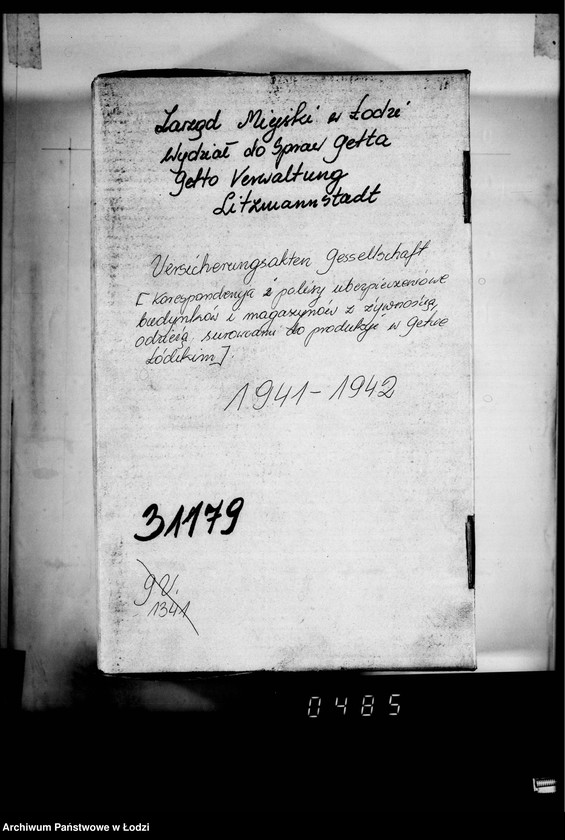 Zarząd Miejski w Łodzi
Wydział do Spraw Getta
Getto Verwaltung
Litzmannstadt
Versicherungsakten Gessellschaft
[Korespondencja i polisy ubezpieczeniowe
budynków i magazynów z żywnością,
odzieżą, surowcami do produkcji w Getcie
Łódzkim].
1941-1942
31179
GV.
1341
0485
Archiwum Państwowe w Łodzi